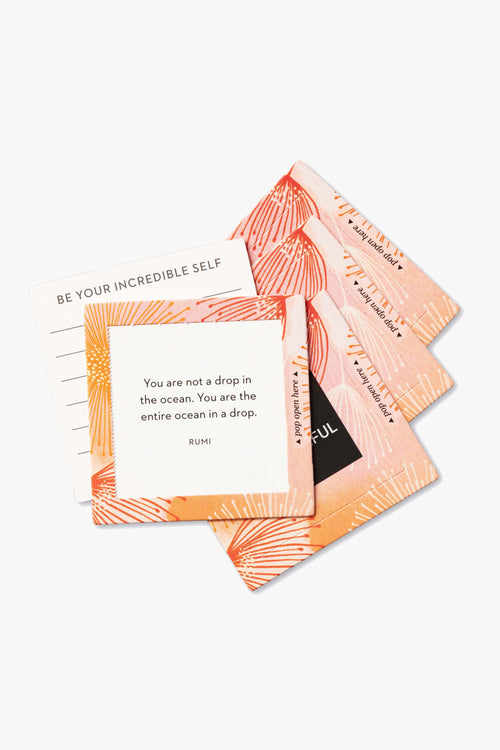 BE YOUR INCREDIBLE SELF
You are not a drop in
the ocean. You are the
entire ocean in a drop.
RUMI
▲ pop open here ▲
▲ pop open here ▲
▲ pop open here ▲
▲ pop open here ▲
FUL